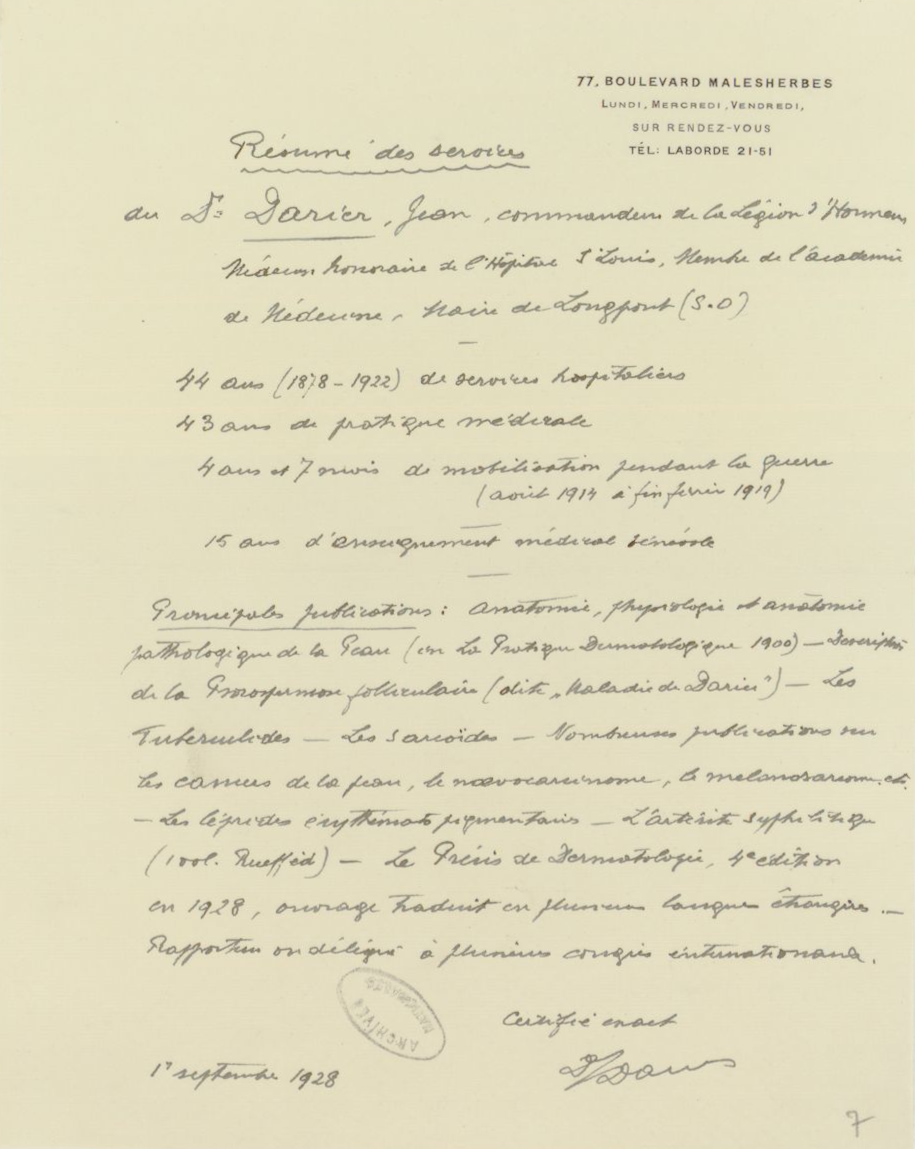 77, BOULEVARD MALESHERBES
LUNDI, MERCREDI, VENDREDI,
SUR RENDEZ-VOUS
TÉL: LABORDE 21-51
Résumé des services
du Dr Darier, Jean, commandeur de la Légion d'Honneur
Médecin honoraire de l'Hôpital St Louis, Membre de l'académie
de Médecine, Maire de Longpont (S.O)
44 ans (1878-1922) de services hospitaliers
43 ans de pratique médicale
4 ans et 7 mois de mobilisation pendant la guerre
(août 1914 à fin février 1919)
15 ans d'enseignement médical bénévole
Principales publications: anatomie, physiologie et anatomie
pathologique de la Peau (in La Pratique Dermatologique 1900) — Description
de la Psorospermose folliculaire (dite „Maladie de Darier") — Les
Tuberculides — Les Sarcoïdes — Nombreuses publications sur
les cancers de la peau, le naevocarcinome, le mélanosarcome, etc.
— Les léprides érythémato pigmentaires — L'artérite syphilitique
(1 vol. Rueff éd) — Le Précis de Dermatologie, 4e édition
en 1928, ouvrage traduit en plusieurs langues étrangères. —
Rapporteur ou délégué à plusieurs congrès internationaux.
ARCHIVES
NATIONALES
Certifié exact
Dr J Darier
1r septembre 1928
7